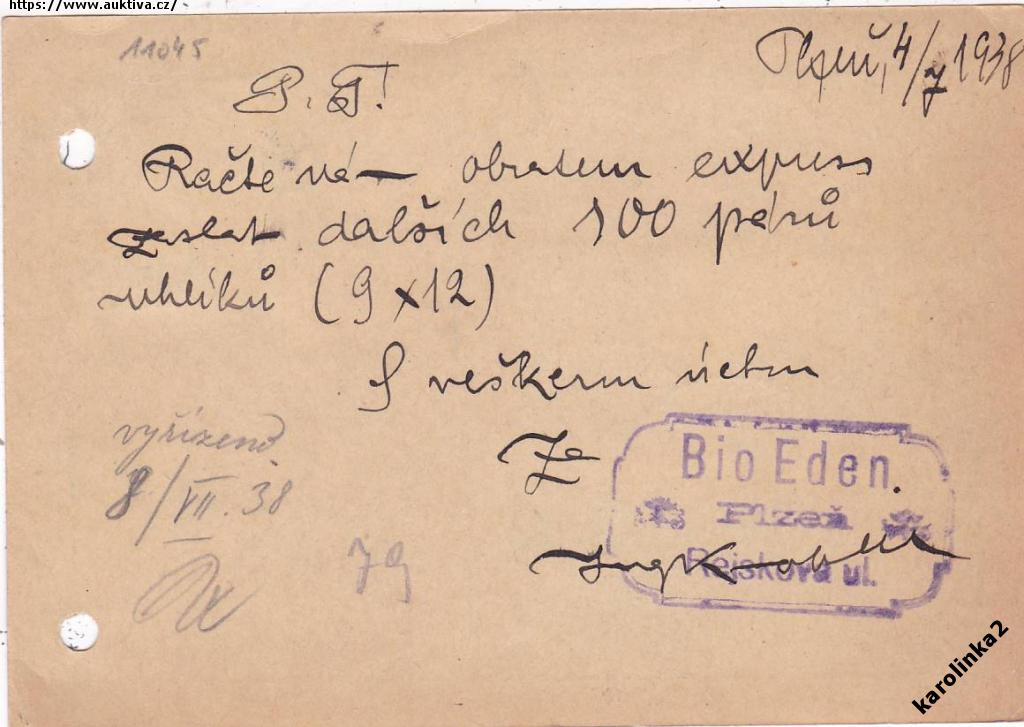 https://www.auktiva.cz/
11045
Plzeň, 4/7 1938
P. T.!
Račte ná— obratem express
zaslat dalších 100 párů
uhlíků (9x12)
S veškerou úctou
Za
Bio Eden.
Plzeň
Rejskova ul.
Ing
vyřízeno
8/VII. 38
79
karolinka2